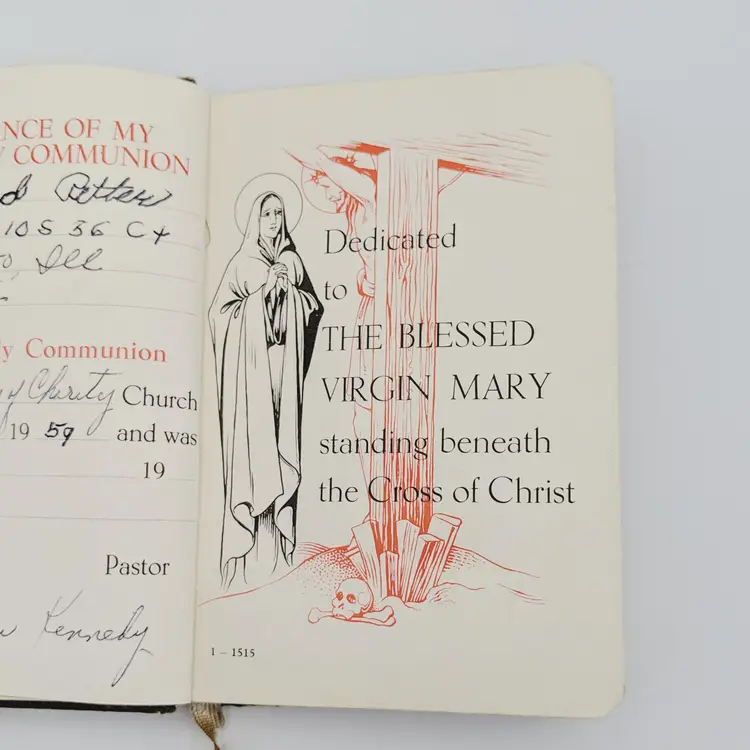 NCE OF MY
Y COMMUNION
10 S 36 Ct
Ill
y Communion
Charity Church
19 59 and was
19
Pastor
Kennedy
Dedicated
to
THE BLESSED
VIRGIN MARY
standing beneath
the Cross of Christ
I – 1515